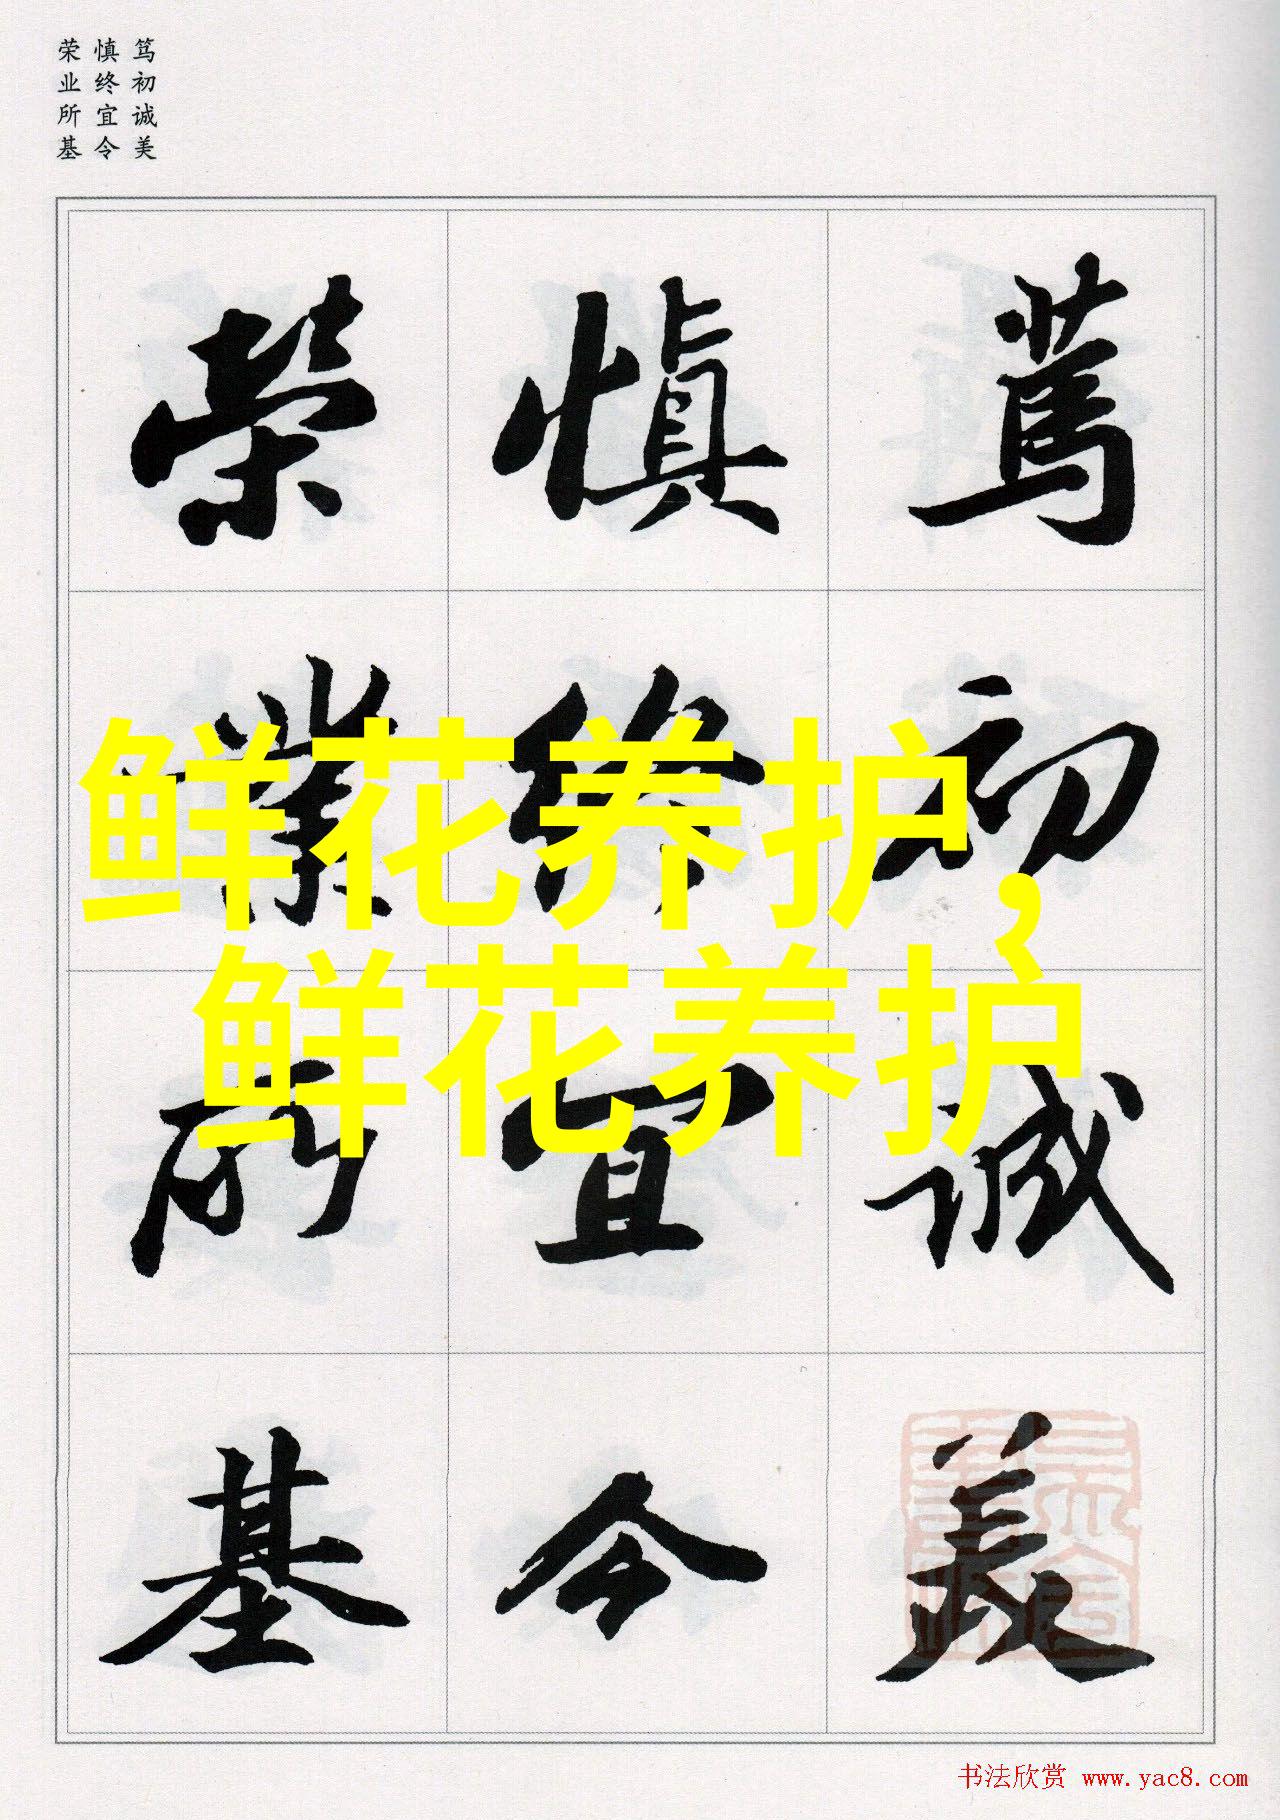 笃初诚美
慎终宜令
荣业所基
篤初诚美
慎终宜令
榮業所基
鲜花养护，
鲜花养护
书法欣赏 www.yac8.com